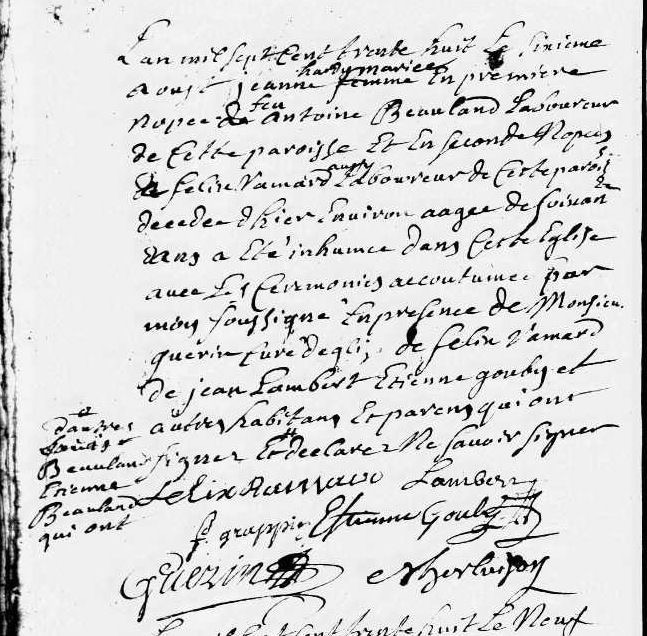 L'an mil sept Cent trente huit Le sixieme
aoust jeanne hardy mariee femme En premiere
Nopce de feu Antoine Beauland Laboureur
de Cette paroisse Et En seconde Nopces
de felix Ramard aussy Laboureur de Cette parois
decedee d'hier Environ aagee de soixan
te ans a Eté inhumee dans Cette Eglise
avec Les Ceremonies accoutumee par
moy soussigné En presence de Monsieu
querin Curé de de felix Ramard
de jean Lambert Etienne gouby et
autres habitans Et parens qui ont
signer Et declarer Ne savoir signer
et
d'autres
Beauland
Etienne
Beauland
qui ont
felix Lambert
grappin Estienne Gouby
Guerin
Cent trente huit Le Neuf